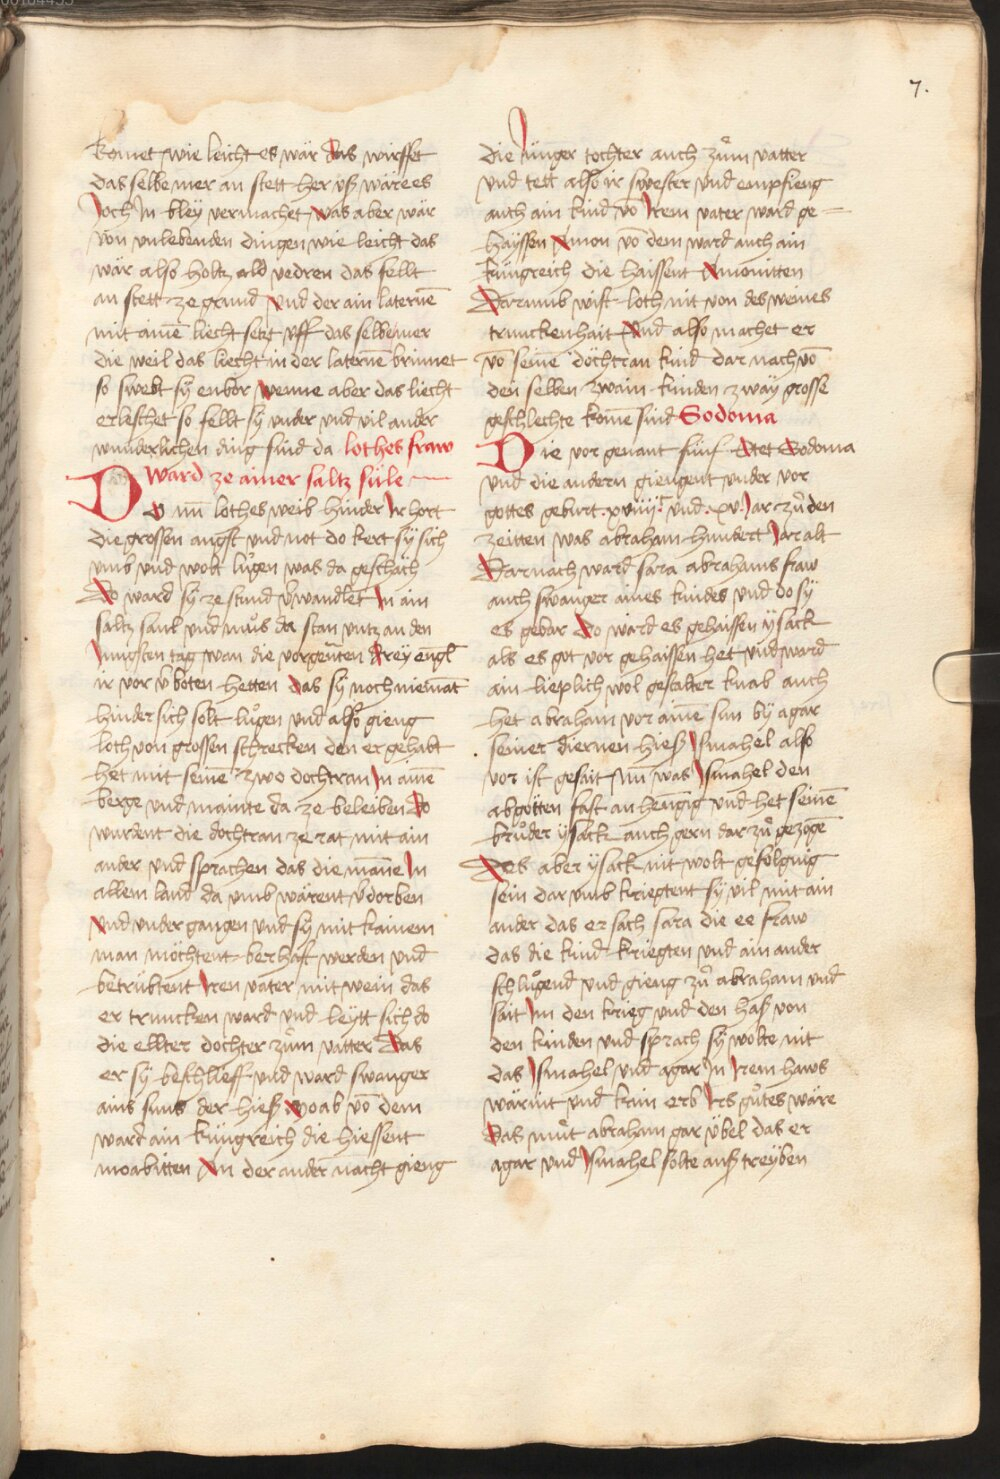 7.
komet wie leicht es wär das wirffet
das selbe mer an stett her uß wäre es
Joch Jn bleÿ vermachet was aber wär
von unlebenden dingen wie leicht das
wär also holtz ald vedren das fellt
an stett ze grund und der ain laternē
mit ainē liecht setzt uff das selbe mer
die weil das liecht in der laternē brinnet
so swebt sÿ enbor wenne aber das liecht
erleschet so fellt sÿ under und vil ander
wunderlichen ding sind da lothes fraw
ward ze ainer saltz süle
Do nū lothes weib hinder Jr hort
die grossen angst und not do kert sÿ sich
umb und wolt lůgen was da geschäch
Do ward sÿ ze stund v̄wandlet Jn ain
saltz saul und můs da stan untz an den
Jungsten tag wan die vorgenten dreÿ engl
ir vor v̄boten hetten das sÿ noch niemāt
hinder sich solt lůgen und also gieng
loth von grossen schrecken den er gehabt
het mit seinē zwo dochtran Jn ainē
berge und mainte da ze beleiben do
wurdent die dochtran ze rat mit ain
ander und sprachen das die mañe Jn
allem land da umb wärent v̄dorben
und under gangen und sÿ mit kainem
man möchtent berhaft werden und
betrübtent Jren vater mit wein das
er truncken ward und leÿtt sich do
die ellter dochter zům vatter das
er sÿ beschlieff und ward swanger
ains suns der hieß moab vō dem
ward ain küngreich die hiessent
moabitten An der ander nacht gieng
die Jünger tochter auch zům vatter
und tett also ir swester und empfieng
auch ain kind vō Jrem vater ward ge=
haÿssen Amon vō dem ward auch ain
küngreich die haissent Amonitten
Darumb wist loth nit von des weines
trunckenhait und also machet er
vō seinē döchtran kind dar nach vō
den selben zwain kinden zwaÿ grosse
geschlechte komē sind Sodoma
Die vor genant fünf stet Sodoma
und die andern giengent under vor
gottes geburt xviiijc und xv Jar zů den
zeitten was abraham hundert Jar alt
Darnach ward sara abrahams fraw
auch swanger aines kindes und do sÿ
es gebar do ward es gehaissen ÿsack
als es got vor gehaissen het und ward
ain lieplich wol gestalter knab auch
het abraham vor ainē sun bÿ agar
seiner diernen hieß Jsmahel also
vor ist gesait Nun was Jsmahel den
abgötten fast an hengig und het seinē
brůder ÿsack auch gern dar zů gezogē
Des aber ÿsack nit wolt gefölgnig
sein dar umb kriegtent sÿ vil mit ain
ander das ersach sara die ee fraw
das die kind kriegten und ain ander
schlůgend und gieng zů abraham und
sait Jm den krieg und den haß von
den kinden und sprach sÿ wolte nit
das Jsmahel und agar Jn Jrem haws
wärint und kain erb Jrs gůtes wäre
das műt abraham gar übel das er
agar und Jsmahel solte auß treÿben